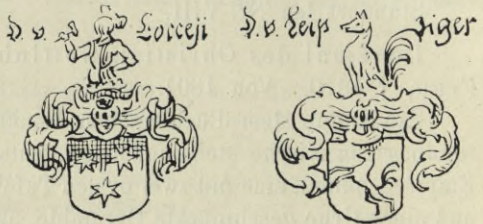 D. v. Lorceji
D. v. Leip ziger